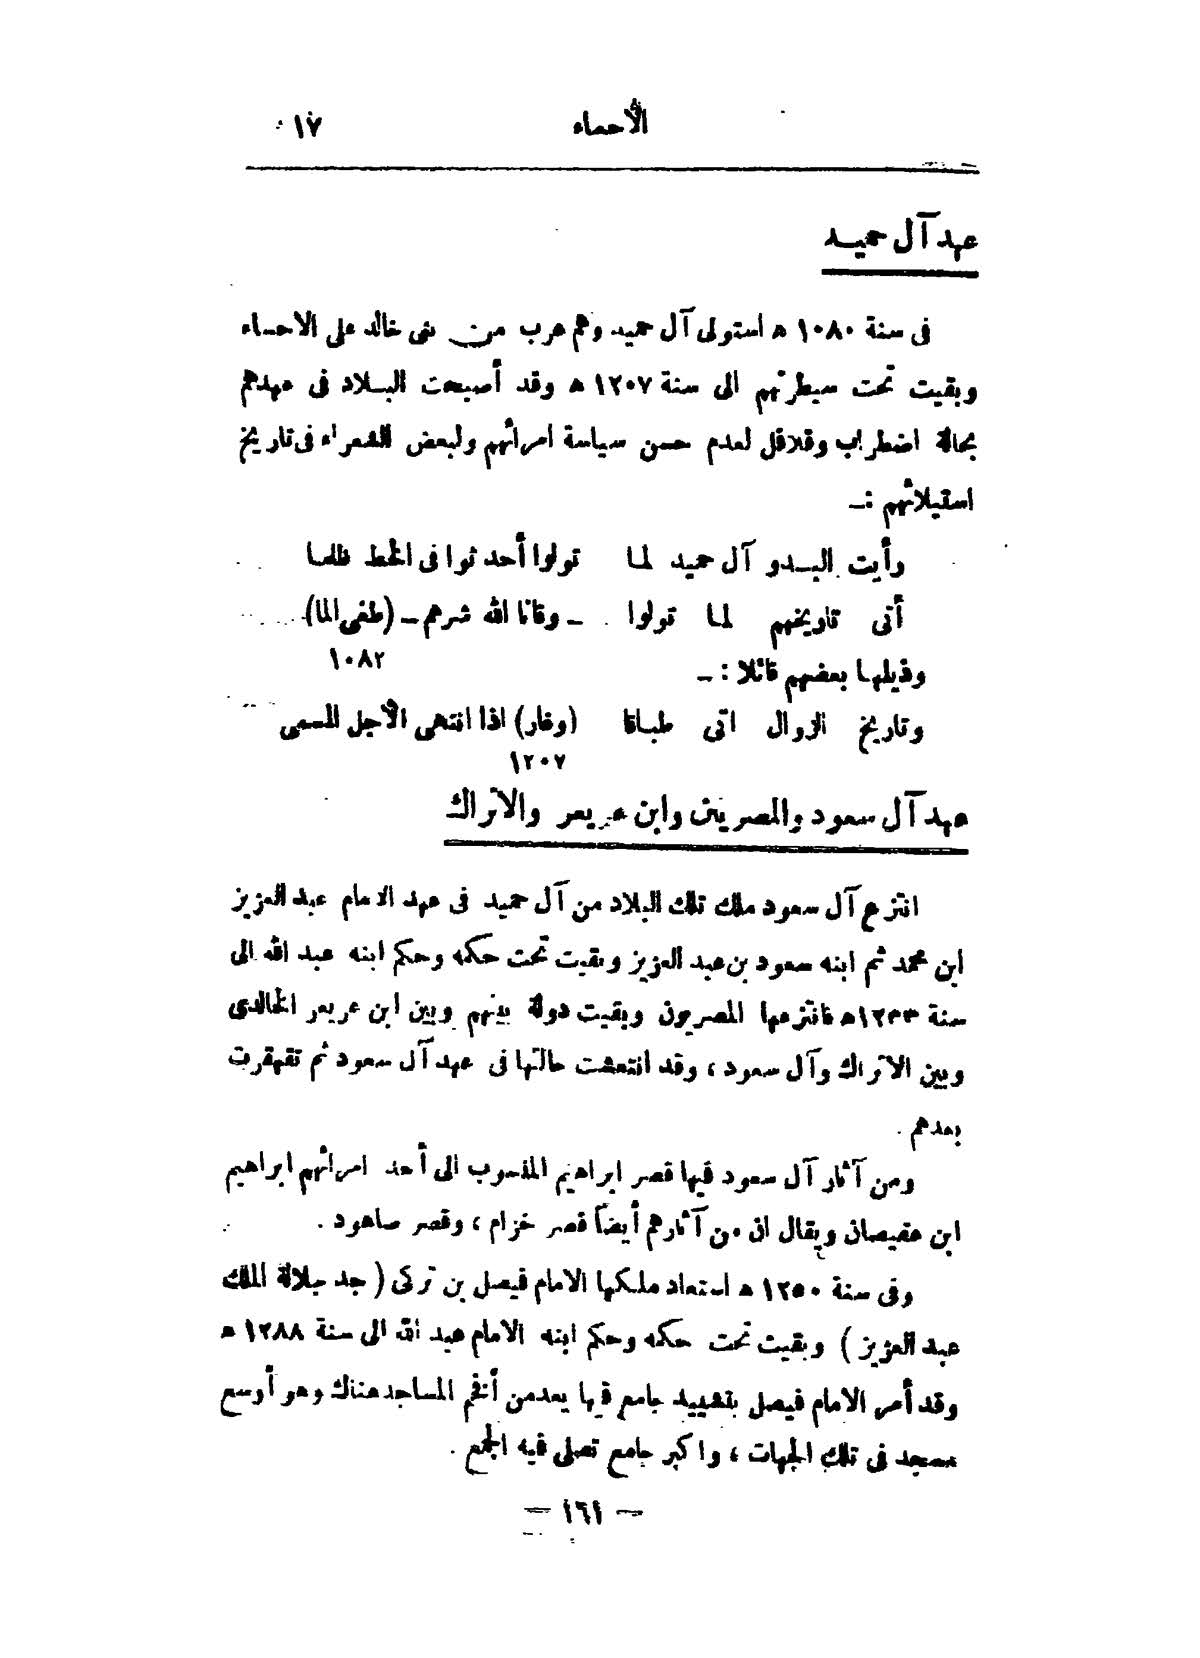 الأحساء ١٧
عهد آل حميد
فى سنة ١٠٨٠ ه استولى آل حميد وهم عرب من بنى خالد على الاحساء
وبقيت تحت سيطرتهم الى سنة ١٢٠٧ ه وقد أصبحت البلاد فى عهدهم
بحالة اضطراب وقلاقل لعدم حسن سياسة امرائهم ولبعض الشعراء فى تاريخ
استيلائهم :ــ
رأيت البدو آل حميد لما تولوا أحدثوا فى الخط ظلما
أتى تاريخهم لما تولوا ــ وقانا الله شرهم ــ (طغى الما)
١٠٨٢
وذيلها بعضهم قائلا : ــ
وتاريخ الزوال اتى طباقا (وغار) اذا انتهى الأجل المسمى
١٢٠٧
عهد آل سعود والمصريين وابن عريعر والاتراك
انتزع آل سعود ملك تلك البلاد من آل حميد فى عهد الامام عبد العزيز
ابن محمد ثم ابنه سعود بن عبد العزيز وبقيت تحت حكمه وحكم ابنه عبد الله الى
سنة ١٢٣٣ه فانتزعها المصريون وبقيت دولة بينهم وبين ابن عريعر الخالدى
وبين الاتراك وآل سعود ، وقد انتعشت حالتها فى عهد آل سعود ثم تقهقرت
بعدهم .
ومن آثار آل سعود فيها قصر ابراهيم المنسوب الى أحد امرائهم ابراهيم
ابن عفيصان ويقال ان من آثارهم أيضاً قصر خزام ، وقصر صاهود .
وفى سنة ١٢٥٠ ه استعاد ملكها الامام فيصل بن تركى ( جد جلالة الملك
عبد العزيز ) وبقيت تحت حكمه وحكم ابنه الامام عبد الله الى سنة ١٢٨٨ ه
وقد أمر الامام فيصل بتشييد جامع فيها يعد من أفخم المساجد هناك وهو أوسع
مسجد فى تلك الجهات ، واكبر جامع تصلى فيه الجمع .
ــ ١٦١ ــ